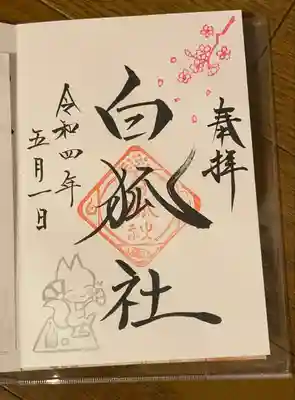 奉拝
白狐社
令和四年
五月一日